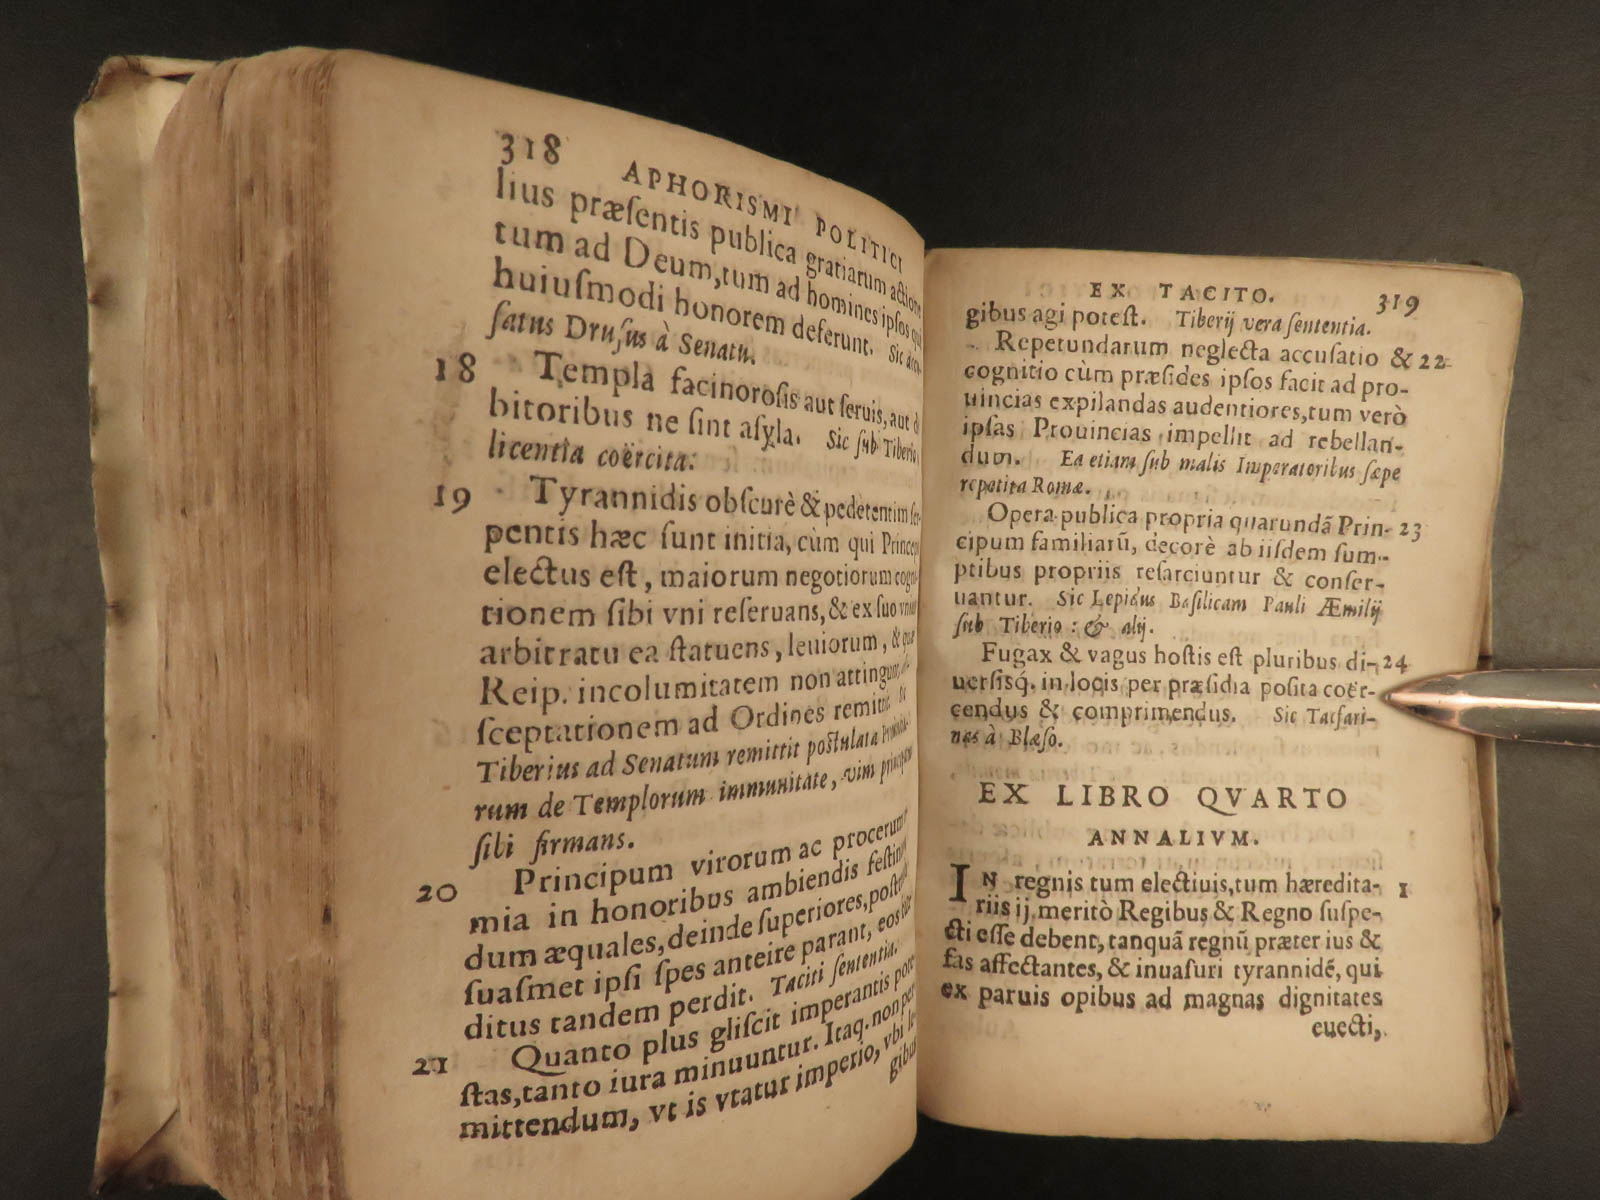 318
APHORISMI POLITICI
lius præſentis publica gratiarum actione
tum ad Deum, tum ad homines ipſos qui
huiuſmodi honorem deferunt. Sic
ſatus Druſus à Senatu.
18 Templa facinoroſis aut ſeruis, aut
bitoribus ne ſint aſyla. Sic ſub Tiberio
licentia coërcita.
19 Tyrannidis obſcurè & pedetentim ſer-
pentis hæc ſunt initia, cùm qui Princeps
electus eſt, maiorum negotiorum cogni-
tionem ſibi vni reſeruans, & ex ſuo vnius
arbitratu ea ſtatuens, leuiorum, & quæ
Reip. incolumitatem non attingunt,
ſceptationem ad Ordines remittit.
Tiberius ad Senatum remittit poſtulata
rum de Templorum immunitate, vim
ſibi firmans.
20 Principum virorum ac procerum
mia in honoribus ambiendis
dum æquales, deinde ſuperiores,
ſuaſmet ipſi ſpes anteire parant, eos
ditus tandem perdit. Taciti ſententia.
21 Quanto plus gliſcit imperantis pote-
ſtas, tanto iura minuuntur. Itaq. non per-
mittendum, vt is vtatur imperio, vbi le-
gibus
EX TACITO. 319
gibus agi poteſt. Tiberij vera ſententia.
Repetundarum neglecta accuſatio & 22
cognitio cùm præſides ipſos facit ad pro-
uincias expilandas audentiores, tum verò
ipſas Prouincias impellit ad rebellan-
dum. Ea etiam ſub malis Imperatoribus ſæpe
repetita Romæ.
Opera publica propria quarundã Prin- 23
cipum familiarũ, decorè ab iiſdem ſum-
ptibus propriis reſarciuntur & conſer-
uantur. Sic Lepidus Baſilicam Pauli Æmilij
ſub Tiberio: & alij.
Fugax & vagus hoſtis eſt pluribus di- 24
uerſisq́. in locis per præſidia poſita coër-
cendus & comprimendus. Sic Tacfari-
nas à Blæſo.
EX LIBRO QVARTO
ANNALIVM.
IN regnis tum electiuis, tum hæredita- 1
riis ij meritò Regibus & Regno ſuſpe-
cti eſſe debent, tanquã regnũ præter ius &
fas affectantes, & inuaſuri tyrannidẽ, qui
ex paruis opibus ad magnas dignitates
euecti,